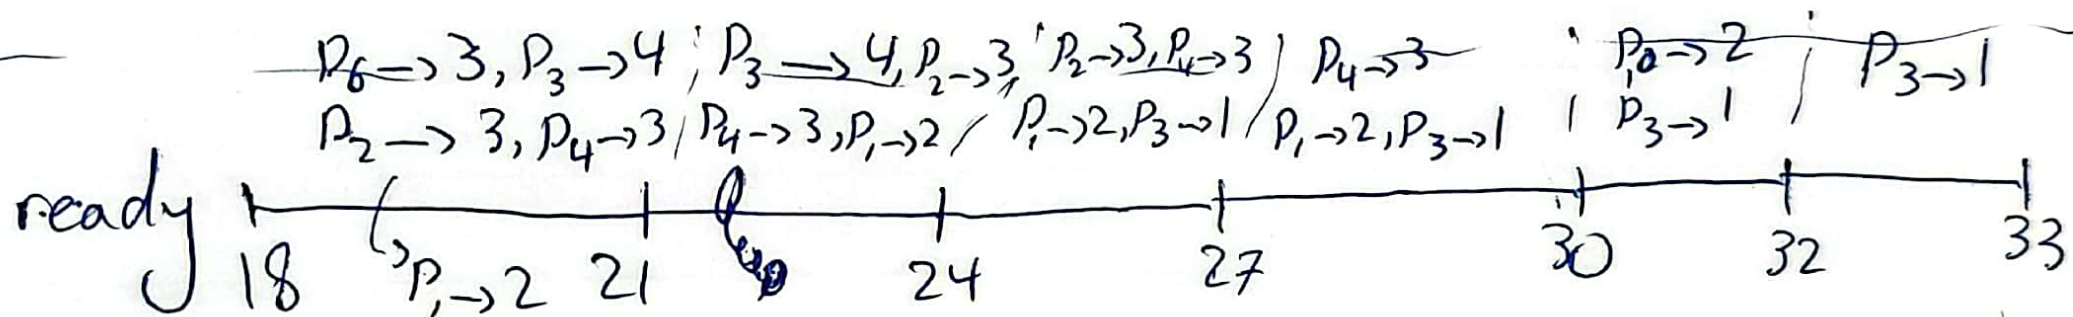 P₆→3, P₃→4 ¦ P₃→4, P₂→3, ¦ P₂→3, P₄→3 / P₄→3 ¦ →2 ¦ P₃→1
P₂→3, P₄→3 / P₄→3, P₁→2 / P₁→2, P₃→1 / P₁→2, P₃→1 | P₃→1 /
ready
18 P₁→2 21 24 27 30 32 33